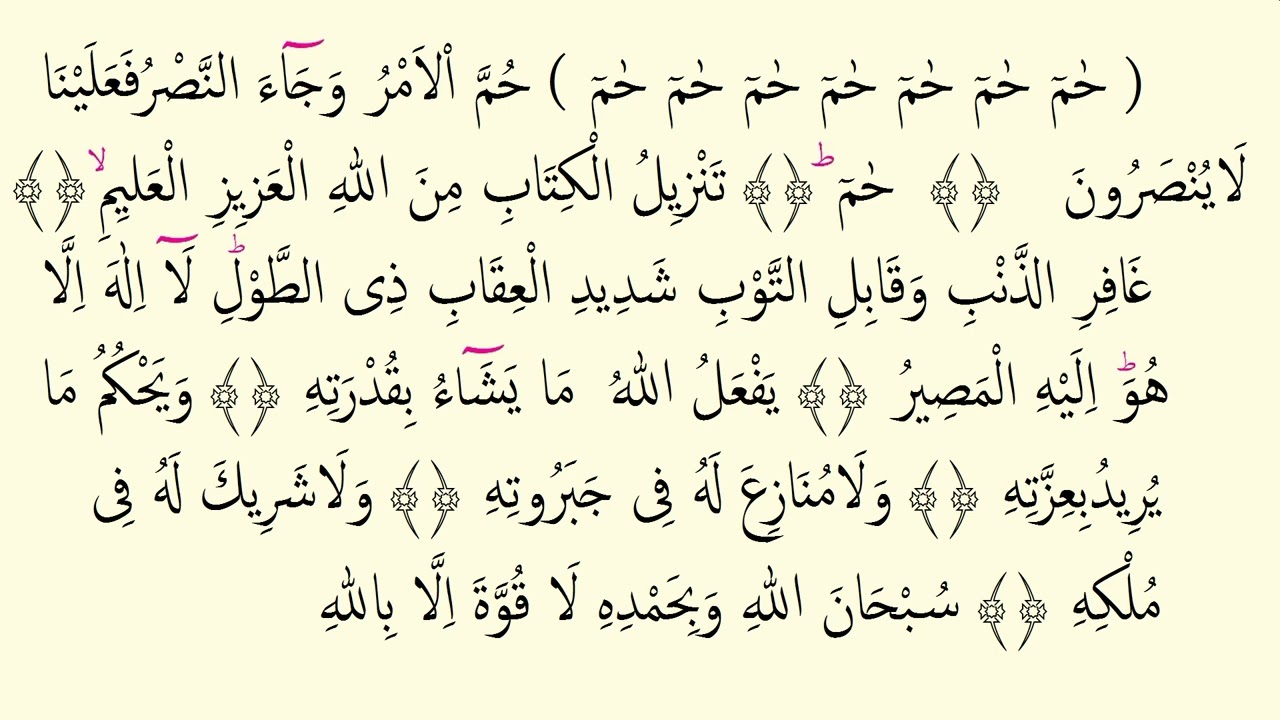 ( حٰمٓ حٰمٓ حٰمٓ حٰمٓ حٰمٓ حٰمٓ حٰمٓ ) حُمَّ اْلاَمْرُ وَجَآءَ النَّصْرُفَعَلَيْنَا
لَايُنْصَرُونَ ﴿﴾ حٰمٓ ؕ ﴿﴾ تَنْزِيلُ الْكِتَابِ مِنَ اللهِ الْعَزِيزِ الْعَلِيمِ ۙ ﴿﴾
غَافِرِ الذَّنْبِ وَقَابِلِ التَّوْبِ شَدِيدِ الْعِقَابِ ذِى الطَّوْلِ ؕ لَآ اِلٰهَ اِلَّا
هُوَ ؕ اِلَيْهِ الْمَصِيرُ ﴿﴾ يَفْعَلُ اللهُ مَا يَشَآءُ بِقُدْرَتِهِ ﴿﴾ وَيَحْكُمُ مَا
يُرِيدُبِعِزَّتِهِ ﴿﴾ وَلَامُنَازِعَ لَهُ فِى جَبَرُوتِهِ ﴿﴾ وَلَاشَرِيكَ لَهُ فِى
مُلْكِهِ ﴿﴾ سُبْحَانَ اللهِ وَبِحَمْدِهِ لَا قُوَّةَ اِلَّا بِاللهِ